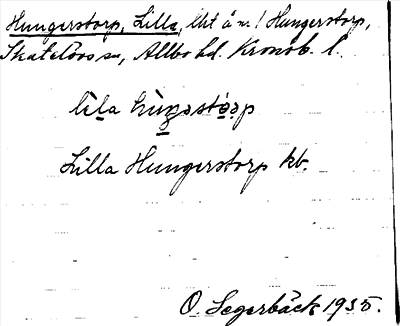 Hungerstorp, Lilla, lht å n. ! Hungerstorp,
Skatelövs sn, Allbo hd. Kronob. l.
Lilla Hungerstorp kb.
O. Segerbäck 1935.